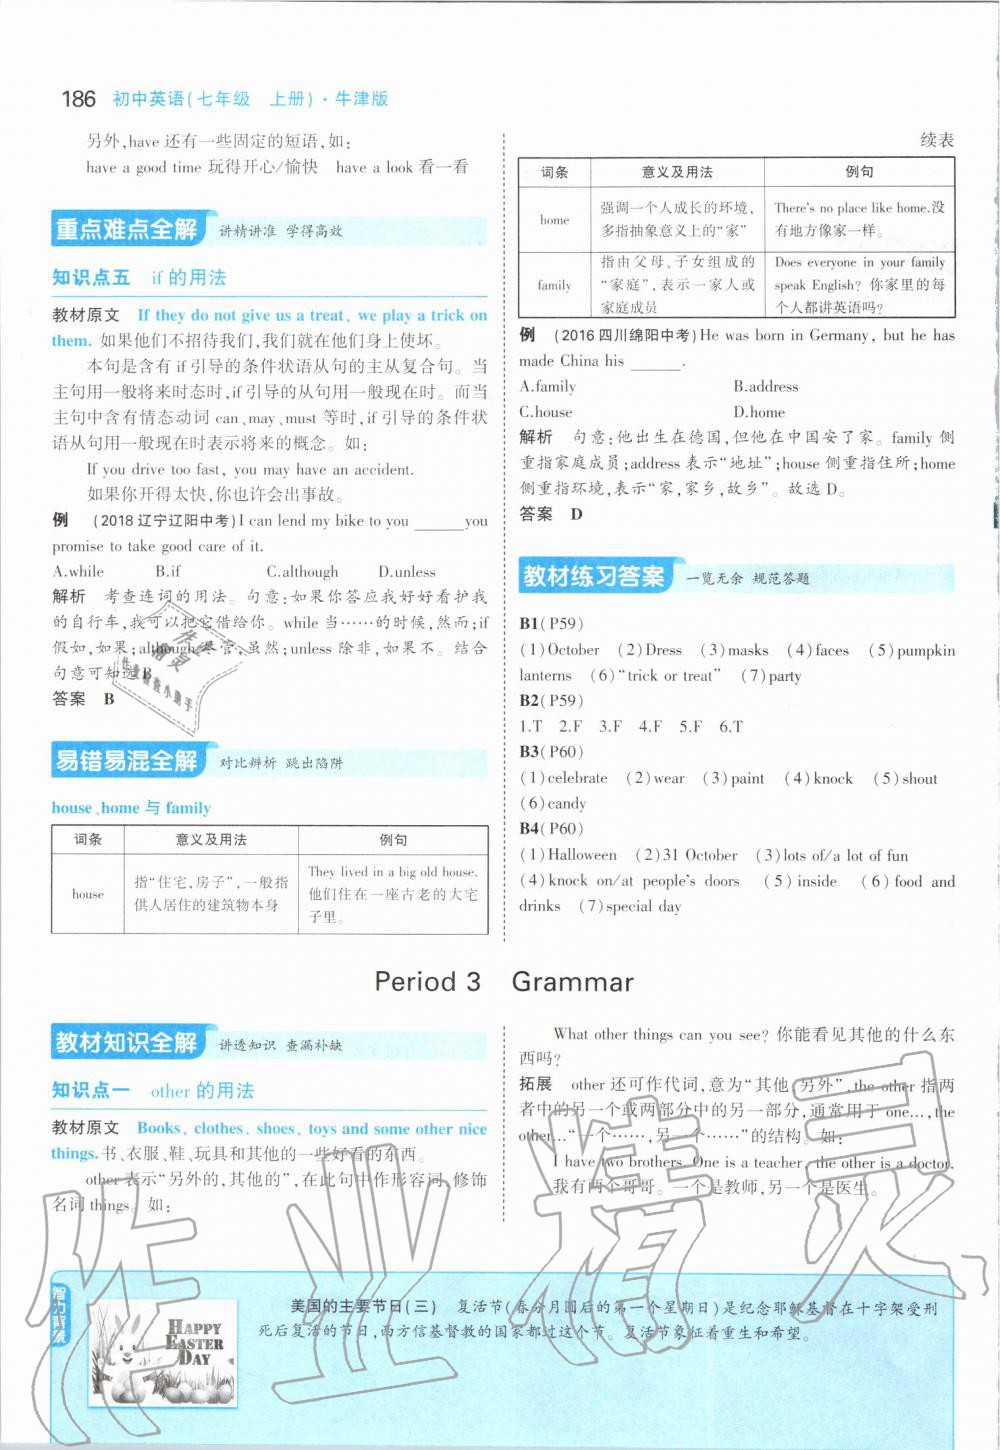 186 初中英语(七年级 上册)·牛津版
另外,have 还有一些固定的短语,如:
have a good time 玩得开心/愉快 have a look 看一看
重点难点全解 讲精讲准 学得高效
知识点五 if 的用法
教材原文 If they do not give us a treat, we play a trick on
them. 如果他们不招待我们,我们就在他们身上使坏。
本句是含有 if 引导的条件状语从句的主从复合句。当
主句用一般将来时态时,if 引导的从句用一般现在时。而当
主句中含有情态动词 can、may、must 等时,if 引导的条件状
语从句用一般现在时表示将来的概念。如:
If you drive too fast, you may have an accident.
如果你开得太快,你也许会出事故。
例 (2018 辽宁辽阳中考)I can lend my bike to you ______you
promise to take good care of it.
A.while B.if C.although D.unless
解析 考查连词的用法。句意:如果你答应我好好看护我
的自行车,我可以把它借给你。while 当……的时候,然而;if
假如,如果;although 尽管,虽然;unless 除非,如果不。结合
句意可知选 B
答案 B
易错易混全解 对比辨析 跳出陷阱
house、home 与 family
词条 意义及用法 例句
house 指“住宅,房子”,一般指供人居住的建筑物本身 They lived in a big old house. 他们住在一座古老的大宅子里。
续表
词条 意义及用法 例句
home 强调一个人成长的环境,多指抽象意义上的“家” There's no place like home.没有地方像家一样。
family 指由父母、子女组成的“家庭”,表示一家人或家庭成员 Does everyone in your family speak English? 你家里的每个人都讲英语吗?
例 (2016 四川绵阳中考)He was born in Germany, but he has
made China his ______.
A.family B.address
C.house D.home
解析 句意:他出生在德国,但他在中国安了家。family 侧
重指家庭成员;address 表示“地址”;house 侧重指住所;home
侧重指环境,表示“家,家乡,故乡”。故选 D。
答案 D
教材练习答案 一览无余 规范答题
B1(P59)
(1)October (2)Dress (3)masks (4)faces (5)pumpkin
lanterns (6)“trick or treat” (7)party
B2(P59)
1.T 2.F 3.F 4.F 5.F 6.T
B3(P60)
(1)celebrate (2)wear (3)paint (4)knock (5)shout
(6)candy
B4(P60)
(1)Halloween (2)31 October (3)lots of/a lot of fun
(4)knock on/at people's doors (5)inside (6)food and
drinks (7)special day
Period 3 Grammar
教材知识全解 讲透知识 查漏补缺
知识点一 other 的用法
教材原文 Books, clothes, shoes, toys and some other nice
things.书、衣服、鞋、玩具和其他的一些好看的东西。
other 表示“另外的,其他的”,在此句中作形容词,修饰
名词 things。如:
What other things can you see? 你能看见其他的什么东
西吗?
拓展 other 还可作代词,意为“其他,另外”,the other 指两
者中的另一个或两部分中的另一部分,通常用于 one..., the
other...“一个……,另一个……”的结构。如:
I have two brothers. One is a teacher, the other is a doctor.
我有两个哥哥。一个是教师,另一个是医生。
智力背景
HAPPY
EASTER
DAY
美国的主要节日(三) 复活节(春分月圆后的第一个星期日)是纪念耶稣基督在十字架受刑
死后复活的节日,西方信基督教的国家都过这个节。复活节象征着重生和希望。
作业精灵